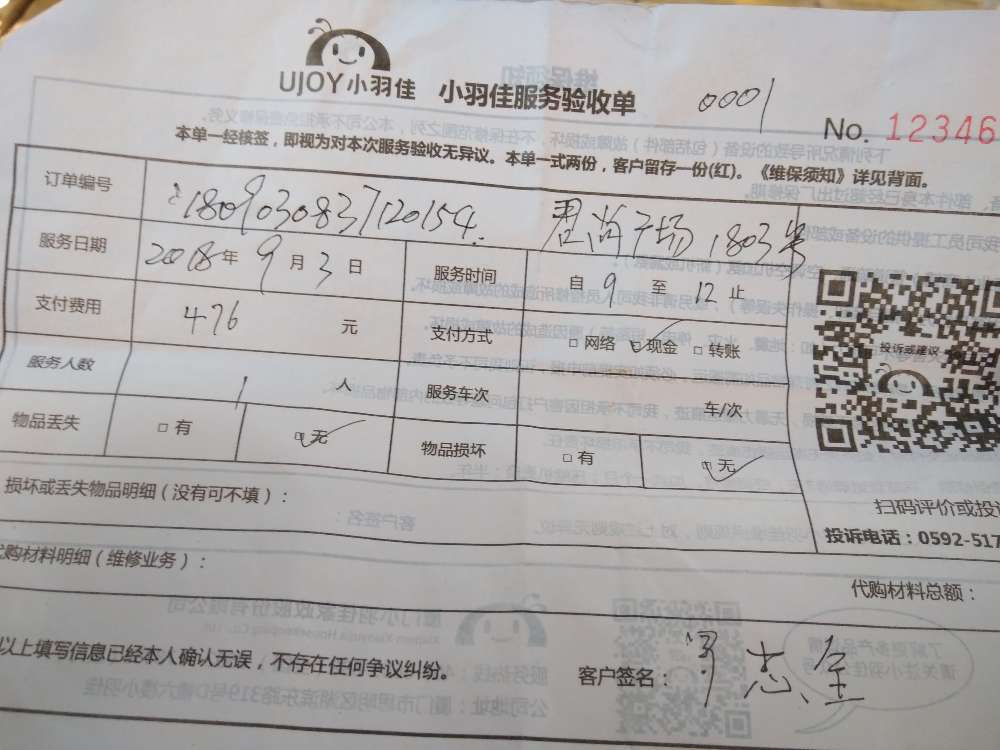 UJOY小羽佳 小羽佳服务验收单 0001
No. 12346
本单一经核签，即视为对本次服务验收无异议。本单一式两份，客户留存一份(红)。《维保须知》详见背面。
订单编号 1809030837120154. 君尚广场1803
服务日期 2018年9月3日 服务时间 自9至12止
支付费用 476元 支付方式 □网络 ☑现金 □转账
服务人数 1人 服务车次 车/次
物品丢失 □有 ☑无 物品损坏 □有 ☑无
投诉或建议
损坏或丢失物品明细（没有可不填）：
扫码评价或投
投诉电话：0592-517
购材料明细（维修业务）：
代购材料总额：
以上填写信息已经本人确认无误，不存在任何争议纠纷。
客户签名：